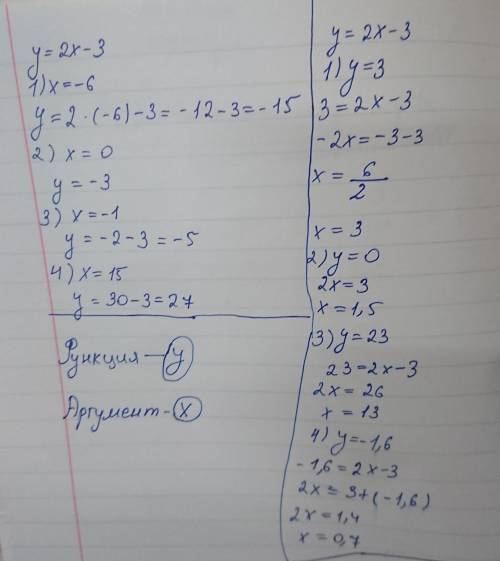 y = 2x - 3
1) x = -6
y = 2 · (-6) - 3 = -12 - 3 = -15
2) x = 0
y = -3
3) x = -1
y = -2 - 3 = -5
4) x = 15
y = 30 - 3 = 27
Функция — y
Аргумент - x
y = 2x - 3
1) y = 3
3 = 2x - 3
-2x = -3 - 3
x = 6/2
x = 3
2) y = 0
2x = 3
x = 1,5
3) y = 23
23 = 2x - 3
2x = 26
x = 13
4) y = -1,6
-1,6 = 2x - 3
2x = 3 + (-1,6)
2x = 1,4
x = 0,7